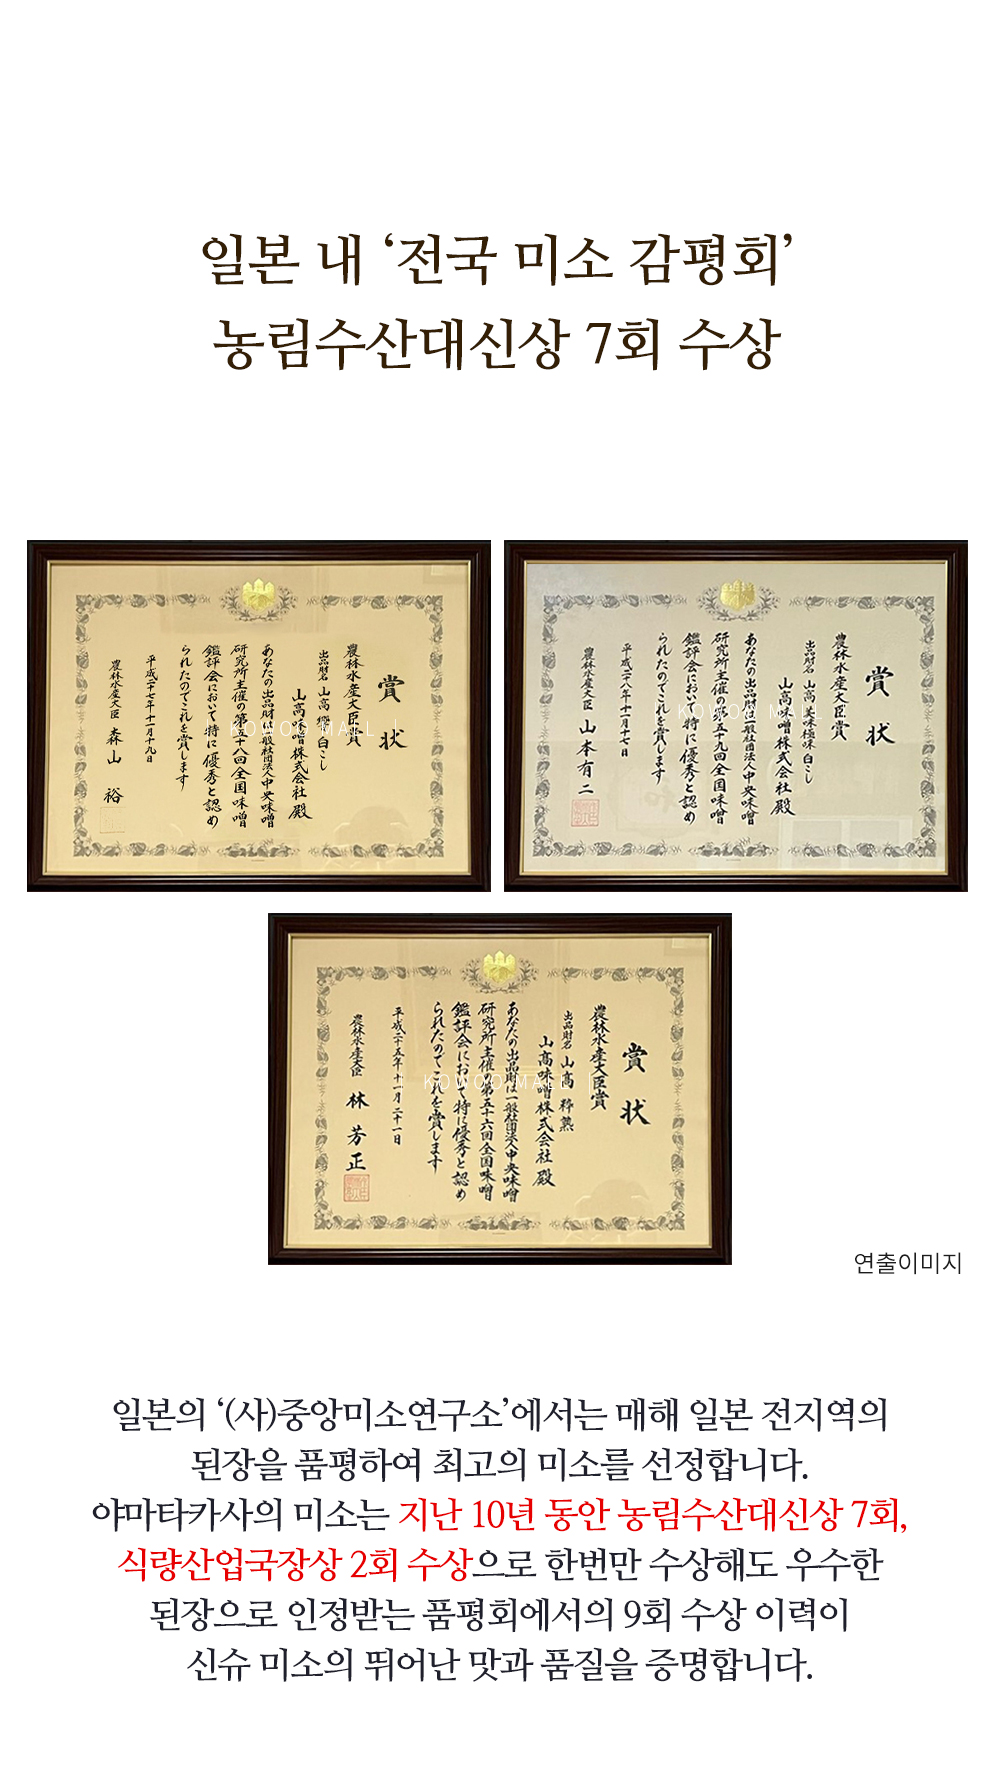 일본 내 ‘전국 미소 감평회’
농림수산대신상 7회 수상
賞状
農林水産大臣賞
出品財名 山高 白こし
山高味噌株式会社 殿
あなたの出品財は一般社団法人中央味噌
研究所主催の第五十八回全国味噌
鑑評会において特に優秀と認め
られたのでこれを賞します
平成二十七年十一月十九日
農林水産大臣 森山 裕
KOWOO MALL
賞状
農林水産大臣賞
出品財名 山高 美味極味 白こし
山高味噌株式会社 殿
あなたの出品財は一般社団法人中央味噌
研究所主催の第五十九回全国味噌
鑑評会において特に優秀と認め
られたのでこれを賞します
平成二十八年十一月十七日
農林水産大臣 山本有二
KOWOO MALL
賞状
農林水産大臣賞
出品財名 山高 粋熟
山高味噌株式会社 殿
あなたの出品財は一般社団法人中央味噌
研究所主催の第五十六回全国味噌
鑑評会において特に優秀と認め
られたのでこれを賞します
平成二十五年十一月二十一日
農林水産大臣 林 芳正
KOWOO MALL
연출이미지
일본의 ‘(사)중앙미소연구소’에서는 매해 일본 전지역의
된장을 품평하여 최고의 미소를 선정합니다.
야마타카사의 미소는 지난 10년 동안 농림수산대신상 7회,
식량산업국장상 2회 수상으로 한번만 수상해도 우수한
된장으로 인정받는 품평회에서의 9회 수상 이력이
신슈 미소의 뛰어난 맛과 품질을 증명합니다.